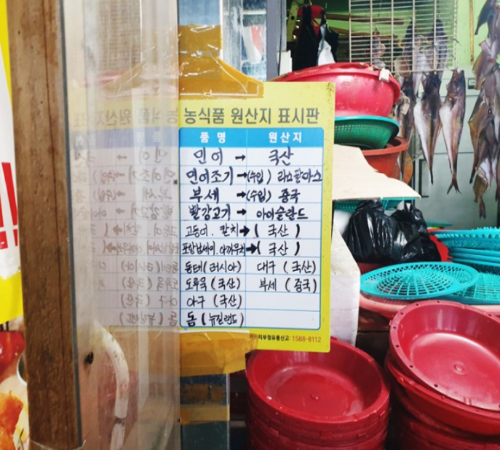 농식품 원산지 표시판
품 명 원산지
연어 → 국산
연어조기 → (수입) 라스팔마스
부세 → (수입) 중국
빨강고기 → 아이슬란드
고등어, 갈치 → ( 국산 )
→ ( 국산 )
동태 (러시아) 대구 ( 국산 )
도루묵 ( 국산 ) 부세 ( 중국 )
아구 ( 국산 )
돔 ( 뉴질랜드 )
1588-8112